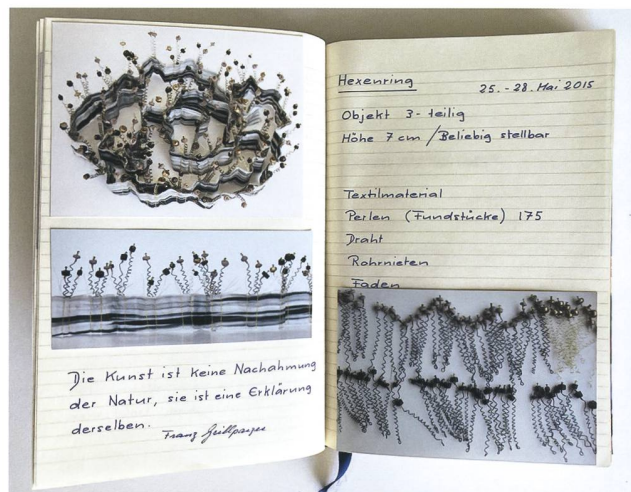 Die Kunst ist keine Nachahmung
der Natur, sie ist eine Erklärung
derselben. Franz Grillparzer
Hexenring 25.-28. Mai 2015
Objekt 3-teilig
Höhe 7 cm / Beliebig stellbar
Textilmaterial
Perlen (Fundstücke) 175
Draht
Rohrnieten
Faden